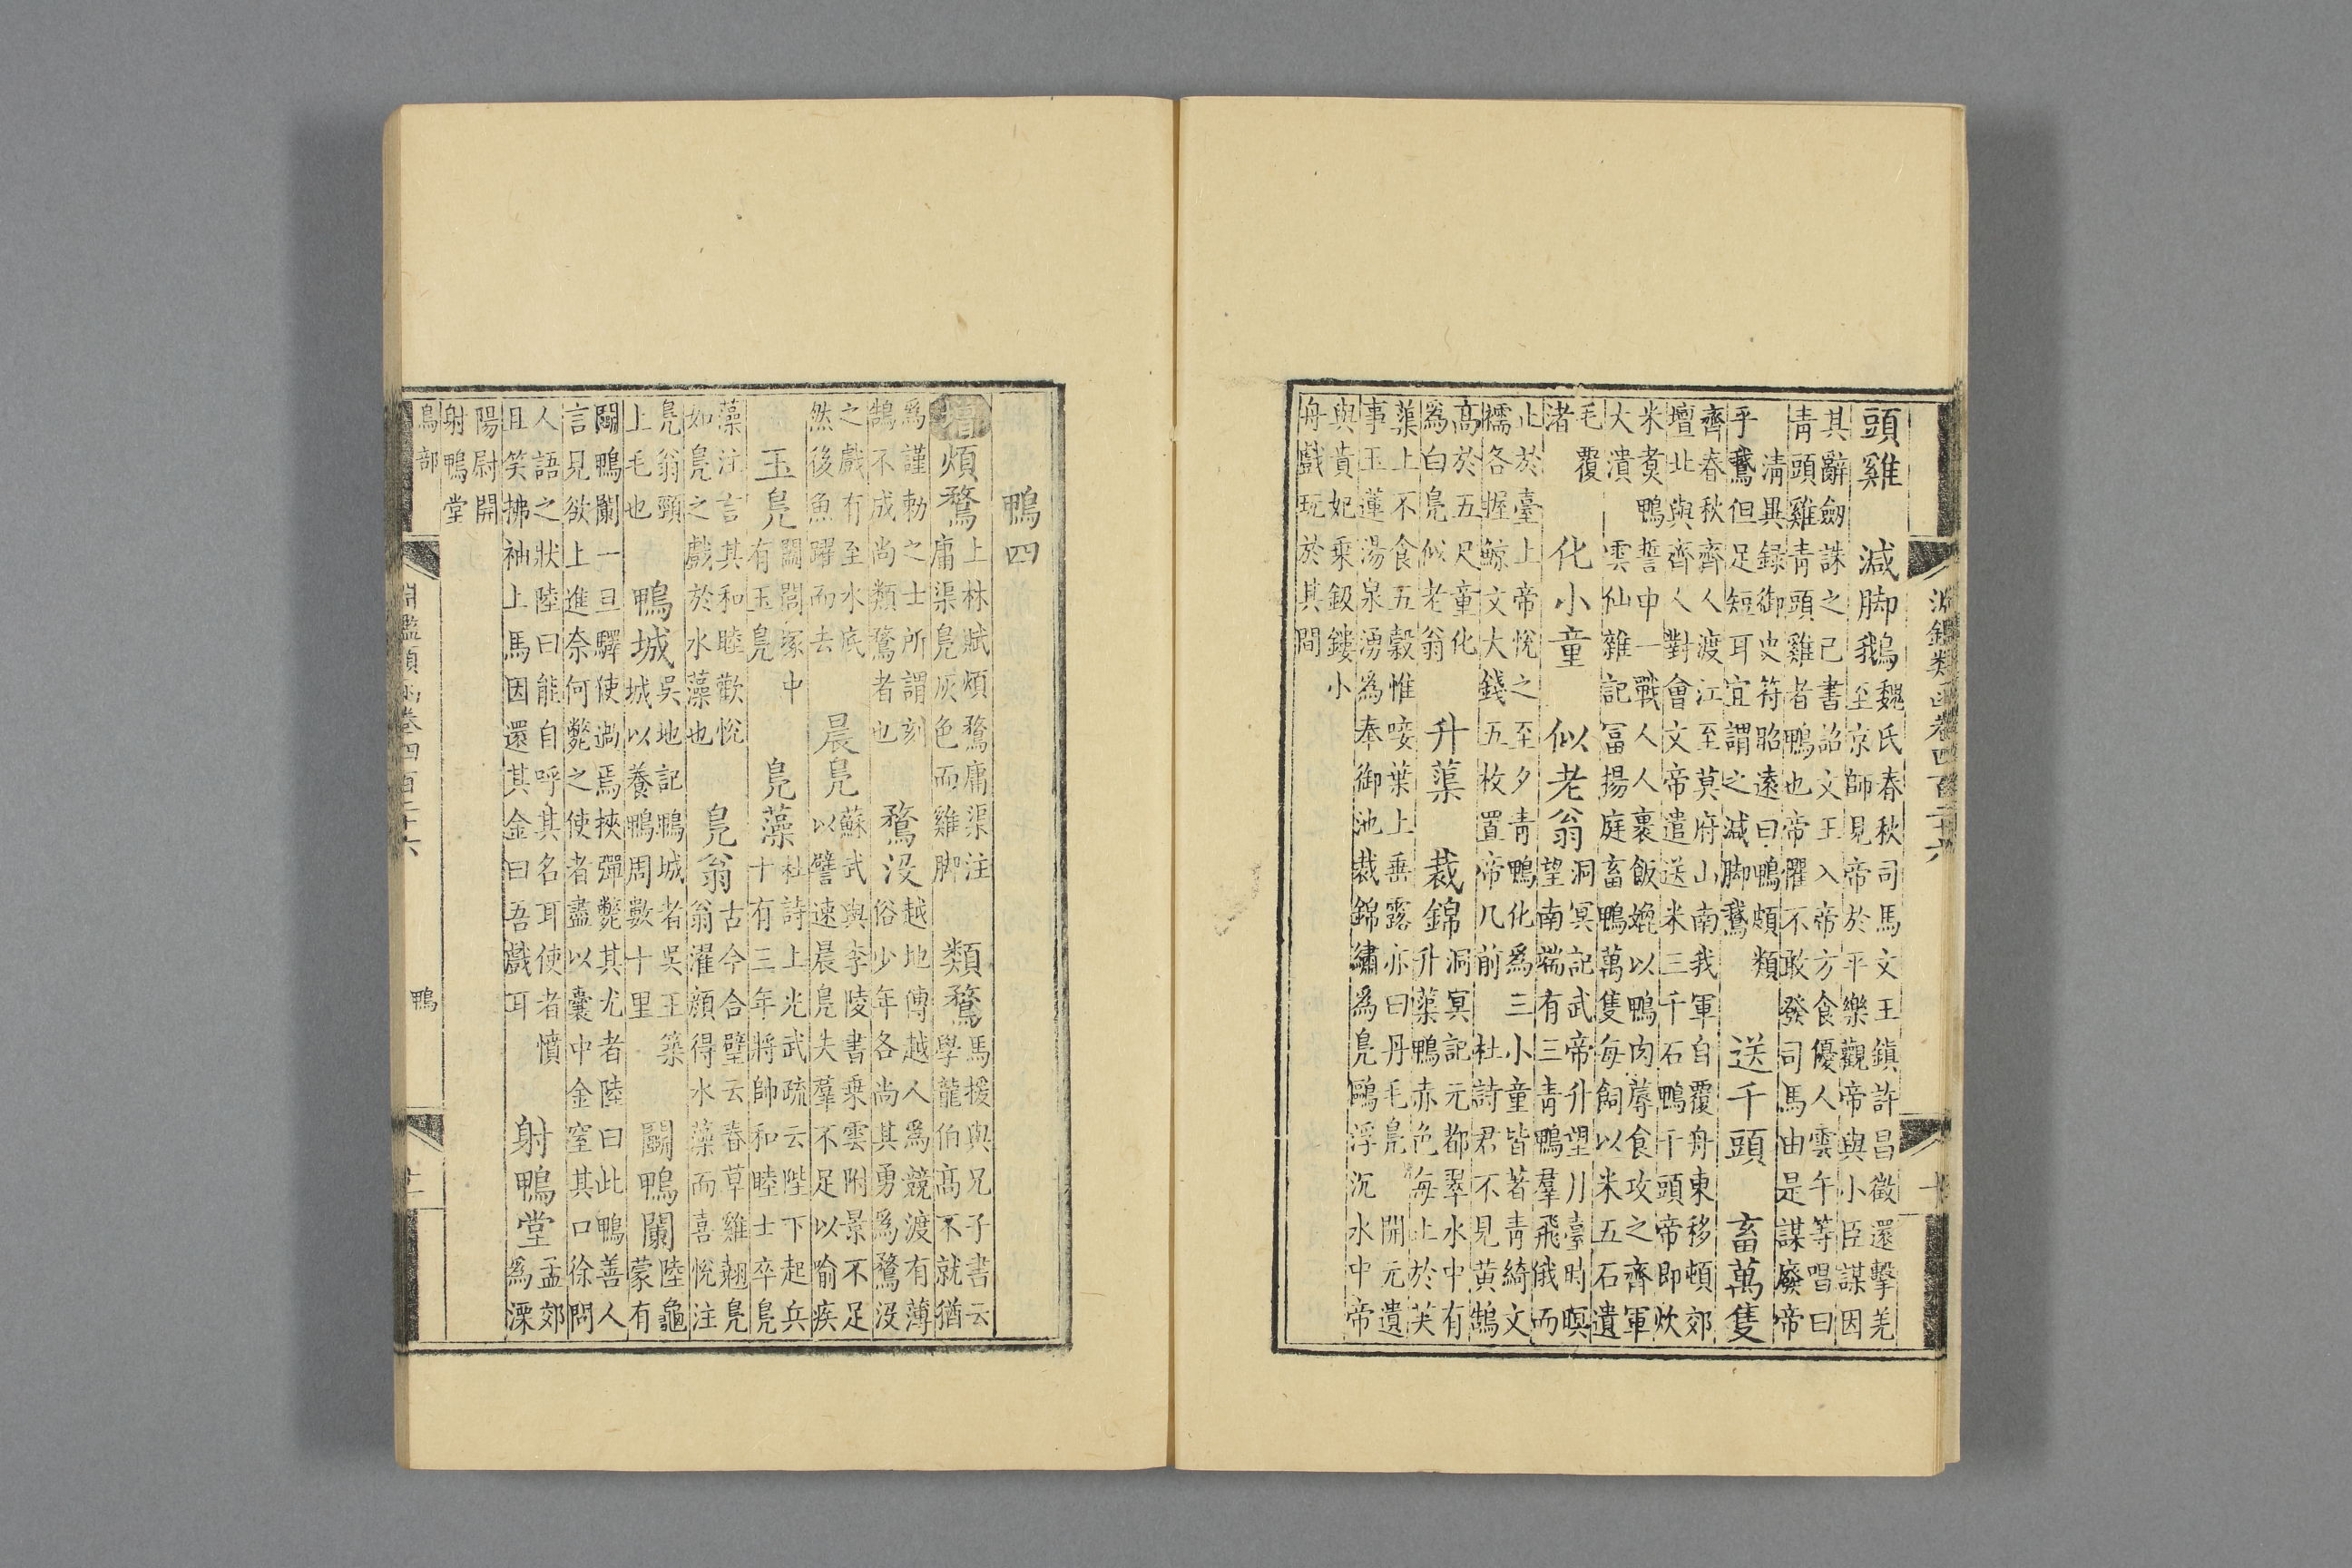 淵鑑類函卷四百二十六 十
頭雞 減脚鵝 魏氏春秋司馬文王鎮許昌徵還擊羌
至京師見帝於平樂觀帝與小臣謀因
其辭劒誅之己書詔文王入帝方食優人雲午等唱曰
青頭雞青頭雞者鴨也帝懼不敢發司馬由是謀廢帝
清異録御史符昭遠曰鴨頗類
乎鵝但足短耳宜謂之減脚鵝 送千頭 畜萬隻
齊春秋齊人渡江至莫府山南我軍自覆舟東移頓郊
壇北與齊人對會文帝遣送米三千石鴨千頭帝即炊
米煑鴨誓中一戰人人裹飯媲以鴨肉蓐食攻之齊軍
大潰 雲仙雜記富揚庭畜鴨萬隻每飼以米五石遺
毛覆
渚 化小童 似老翁 洞冥記武帝升望月臺時暝
望南端有三青鴨羣飛俄而
止於臺上帝悅之至夕青鴨化爲三小童皆著青綺文
襦各握鯨文大錢五枚置帝几前 杜詩君不見黄鵠
高於五尺童化
爲白鳬似老翁 升蕖 裁錦 洞冥記元都翠水中有
升蕖鴨赤色每止於芙
蕖上不食五穀惟唼葉上垂露亦曰丹毛鳬 開元遺
事玉蓮湯泉湧爲奉御池裁錦繡爲鳬鷗浮沉水中帝
與貴妃乘鈒鏤小
舟戲玩於其間
鴨四
增 煩鶩 上林賦煩鶩庸渠注
庸渠鳬灰色而雞脚 類鶩 馬援與兄子書云
學龍伯高不就猶
爲謹勑之士所謂刻
鵠不成尚類鶩者也 鶩没 越地傳越人爲競渡有薄
俗少年各尚其勇爲鶩没
之戲有至水底
然後魚躍而去 晨鳬 蘇武與李陵書乘雲附景不足
以譬速晨鳬失羣不足以喻疾
玉鳬 闔閭塚中
有玉鳬 鳬藻 杜詩上光武疏云陛下起兵
十有三年將帥和睦士卒鳬
藻注言其和睦歡悅
如鳬之戲於水藻也 鳬翁 古今合璧云春草雞翹鳬
翁濯顔得水藻而喜悅注
鳬翁頸
上毛也 鴨城 吳地記鴨城者吳王築
城以養鴨周數十里 鬭鴨闌 陸龜
蒙有
鬭鴨闌一旦驛使過焉挾彈斃其尤者陸曰此鴨善人
言見欲上進奈何斃之使者盡以囊中金窒其口徐問
人語之狀陸曰能自呼其名耳使者憤
且笑拂袖上馬因還其金曰吾戲耳 射鴨堂 孟郊
爲溧
陽尉開
射鴨堂
鳥部 鴨
淵鑑類函卷四百二十六 十一